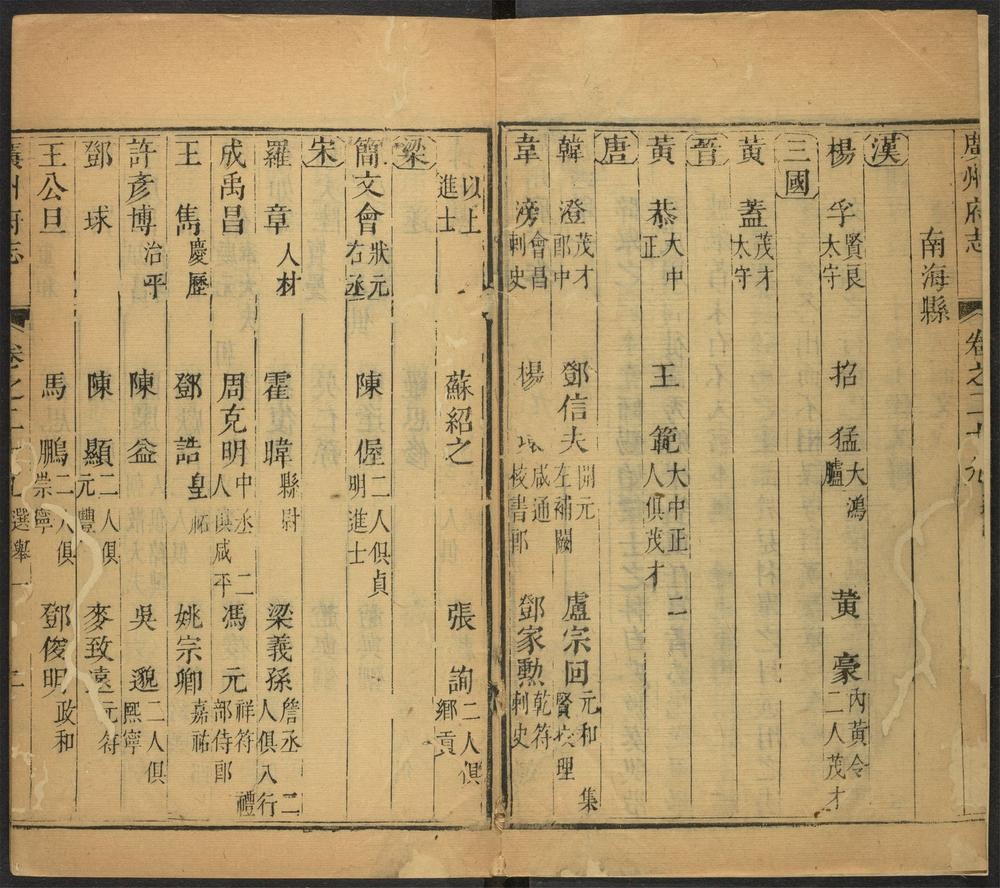 廣州府志 卷之二十九
南海縣
漢
楊孚 賢良 太守 招猛 大鴻臚 黄豪 內黄令 二人茂才
三國
黄蓋 茂才 太守
晉
黄恭 大中正 王範 大中正 二人俱茂才
唐
韓澄 茂才 郎中 鄧信夫 開元 左補闕 盧宗回 元和 集賢 理
韋滂 會昌 刺史 楊 咸通 校書郎 鄧家勲 乾符 刺史
以上進士 蘇紹之 張詢 二人俱鄉貢
梁
簡文會 狀元 右丞 陳偓 二人俱貞明進士
宋
羅章 人材 霍暐 縣尉 梁義孫 簷丞 二人俱八行
成禹昌 周克明 中丞 二人俱咸平 馮元 祥符 禮部侍郎
王雋 慶歷 鄧誥 皇祐 姚宗卿 嘉祐
許彥博 治平 陳益 吳邈 二人俱熙寧
鄧球 陳顯 二人俱元豐 麥致遠 元符
王公旦 馬鵬 二人俱崇寧 鄧俊明 政和
廣州府志 卷之二十九 選舉一 二